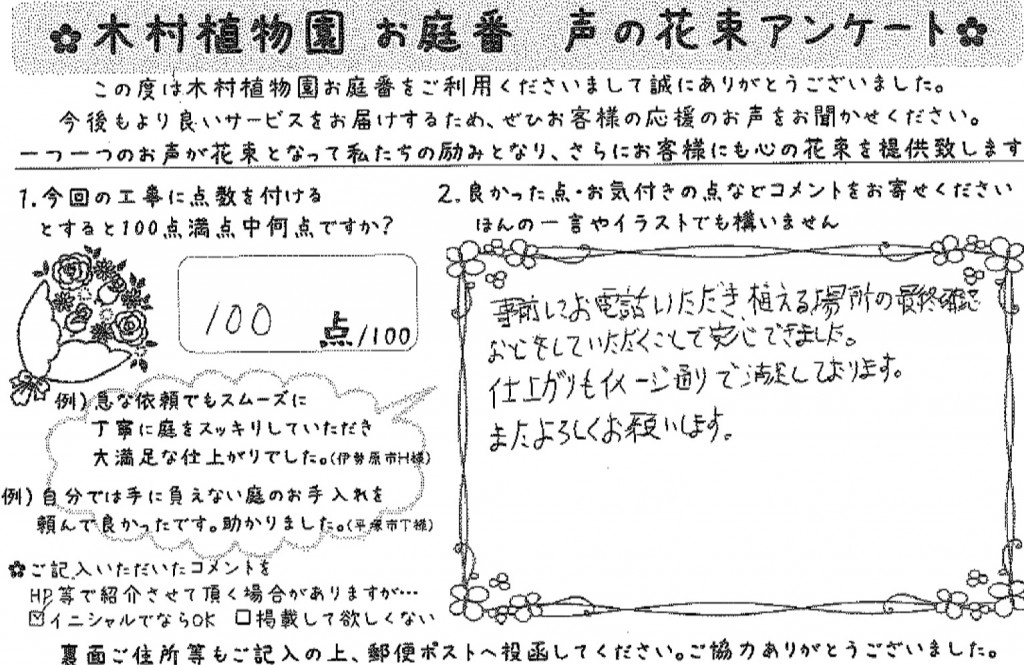 ✿木村植物園 お庭番 声の花束アンケート✿
この度は木村植物園お庭番をご利用くださいまして誠にありがとうございました。
今後もより良いサービスをお届けするため、ぜひお客様の応援のお声をお聞かせください。
一つ一つのお声が花束となって私たちの励みとなり、さらにお客様にも心の花束を提供致します
1.今回の工事に点数を付ける
とすると100点満点中何点ですか?
100 点/100
例)急な依頼でもスムーズに
丁寧に庭をスッキリしていただき
大満足な仕上がりでした。(伊勢原市H様)
例)自分では手に負えない庭のお手入れを
頼んで良かったです。助かりました。(平塚市T様)
✿ご記入いただいたコメントを
HP等で紹介させて頂く場合がありますが…
☑イニシャルでならOK □掲載して欲しくない
2.良かった点・お気付きの点などコメントをお寄せください
ほんの一言やイラストでも構いません
事前にお電話いただき、植える場所の最終確認
などをしていただくことで安心できました。
仕上がりもイメージ通りで満足しております。
またよろしくお願いします。
裏面ご住所等もご記入の上、郵便ポストへ投函してください。ご協力ありがとうございました。